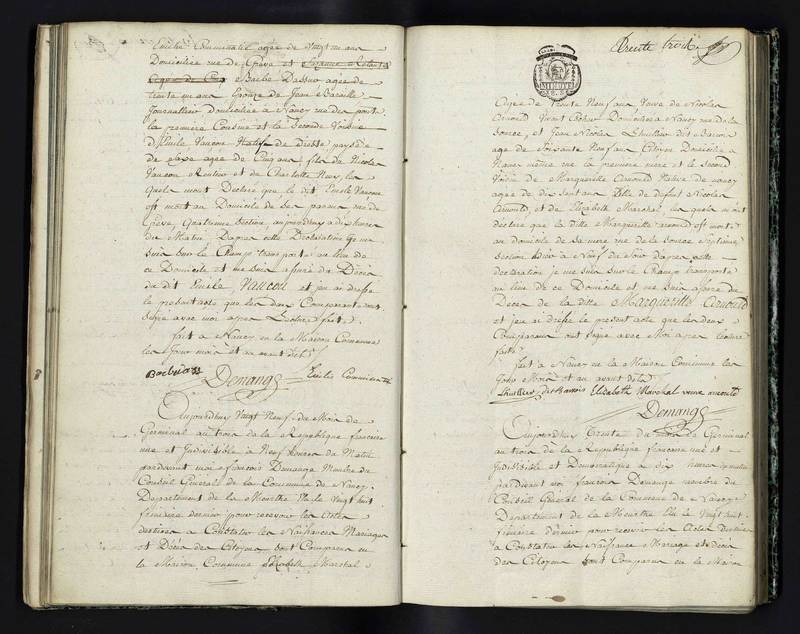 Emilie Comminatte agée de vingt un ans
Domiciliée rue de Grève et
Barbe Dassus agée de
trente un ans Epouse de Jean
Journallier domiciliée a Nancy rue du pont
la première Cousine et la Seconde Voisine
d'Emile Vautour Natif de
de agée de Cinq ans fils de Nicolas
Vautour Rentier et de Charlotte les
quels m'ont Déclaré que le dit Emile Vautour
est mort au Domicile de ses parens rue de
Grève Quatrieme Section, aujourdhuy a dix heures
du Matin Dapres cette Declaration je me
suis sur le Champ transporté au lieu de
ce Domicile et me suis assuré du Décès
du dit Emile, et jen ai dressé
le present acte que les deux Comparants ont
Signé avec moi apres Lecture faite.
fait a Nancy en la Maison Commune
les Jour mois et an avant dits
Demange Emilie Comminatte
Aujourdhuy Vingt Neuf du Mois de
Germinal an trois de la République francoise
une et Indivisible a Neuf heures du Matin
pardevant moi francois Demange Membre du
Conseil Generale de la Commune de Nancy
Departement de la Meurthe Elu le Vingt huit
frimaire dernier pour recevoir les actes
destinés a Constater les Naissances Mariages
et Décès des Citoyens sont Comparus en
la Maison Commune Elisabeth Marchal
Trente trois
Agée de trente Neuf ans Veuve de Nicolas
Arnould Domiciliée a Nancy rue de la
Source, et Jean Nicolas Lhuillier dit Barrois
agé de Soixante Neuf ans Citoyen Domicilié a
Nancy même rue la première mere et le Second
Voisin de Marguerite Arnould Native de nancy
agée de dix Sept ans fille de defunt Nicolas
Arnould, et de Elizabeth Marchal, les quels m'ont
declaré que la ditte Marguerite arnould est morte
au domicile de sa mere rue de la Source Septieme
Section hier a Neuf du Soir dapres cette
declaration je me suis sur le Champ transporté
au lieu de ce Domicile et me suis assuré du
Décès de la ditte Marguerite Arnould
et jen ai dressé le present acte que les deux
Comparans ont signé avec Moi apres lecture
faite
fait a Nancy en la Maison Commune les
Jour Mois et an avant dits
Lhuillier dit Barrois Elizabeth Marchal veuve arnould
Demange
Aujourdhuy Trente du mois de Germinal
an trois de la République francoise une et
Indivisible et Democratique a dix heures du matin
pardevant moi francois Demange membre du
Conseil General de la Commune de Nancy
Departement de la Meurthe Elu le Vingt huit
frimaire dernier pour recevoir les Actes destinés
a Constater les Naissance Mariage et décès
des Citoyens Sont Comparus en la Maison